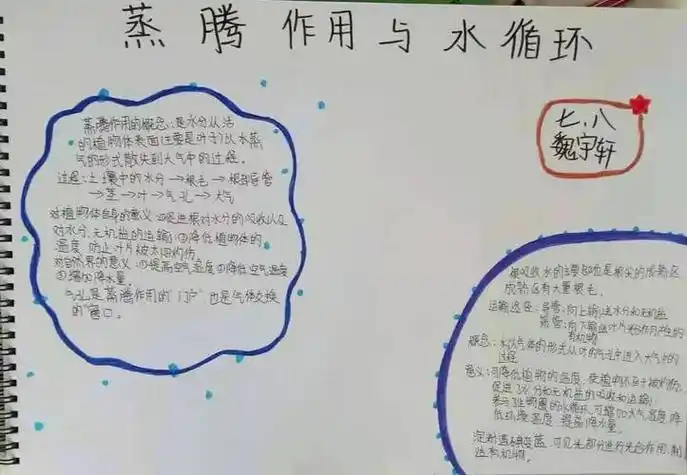 蒸腾作用与水循环
七.八
魏宇轩
蒸腾作用的概念:是水分从活
的植物体表面(主要是叶子)以水蒸
气的形式散失到大气中的过程.
过程:土壤中的水分→根毛→根部导管
→茎→叶→气孔→大气
对植物体自身的意义:①促进根对水分的吸收以及
对水分、无机盐的运输;②降低植物体的
温度,防止叶片被太阳灼伤
对自然界的意义:①提高空气湿度②降低空气温度
③增加降水量.
气孔是蒸腾作用的"门户"也是气体交换
的"窗口.
根吸收水的主要部位是根尖的成熟区
成熟区有大量根毛.
运输途径:导管:向上输送水分和无机盐
筛管:向下输送叶片光合作用产生的
有机物
概念:水以气体的形式从叶的气孔中进入大气中的
过程
意义:可降低植物的温度,使植物不至于被灼伤,
促进了水分和无机盐的吸收和运输;
参与生物圈的水循环,可增加大气湿度,降
低环境温度,提高降水量.
淀粉遇碘变蓝,可见光部分进行光合作用,制
造有机物.